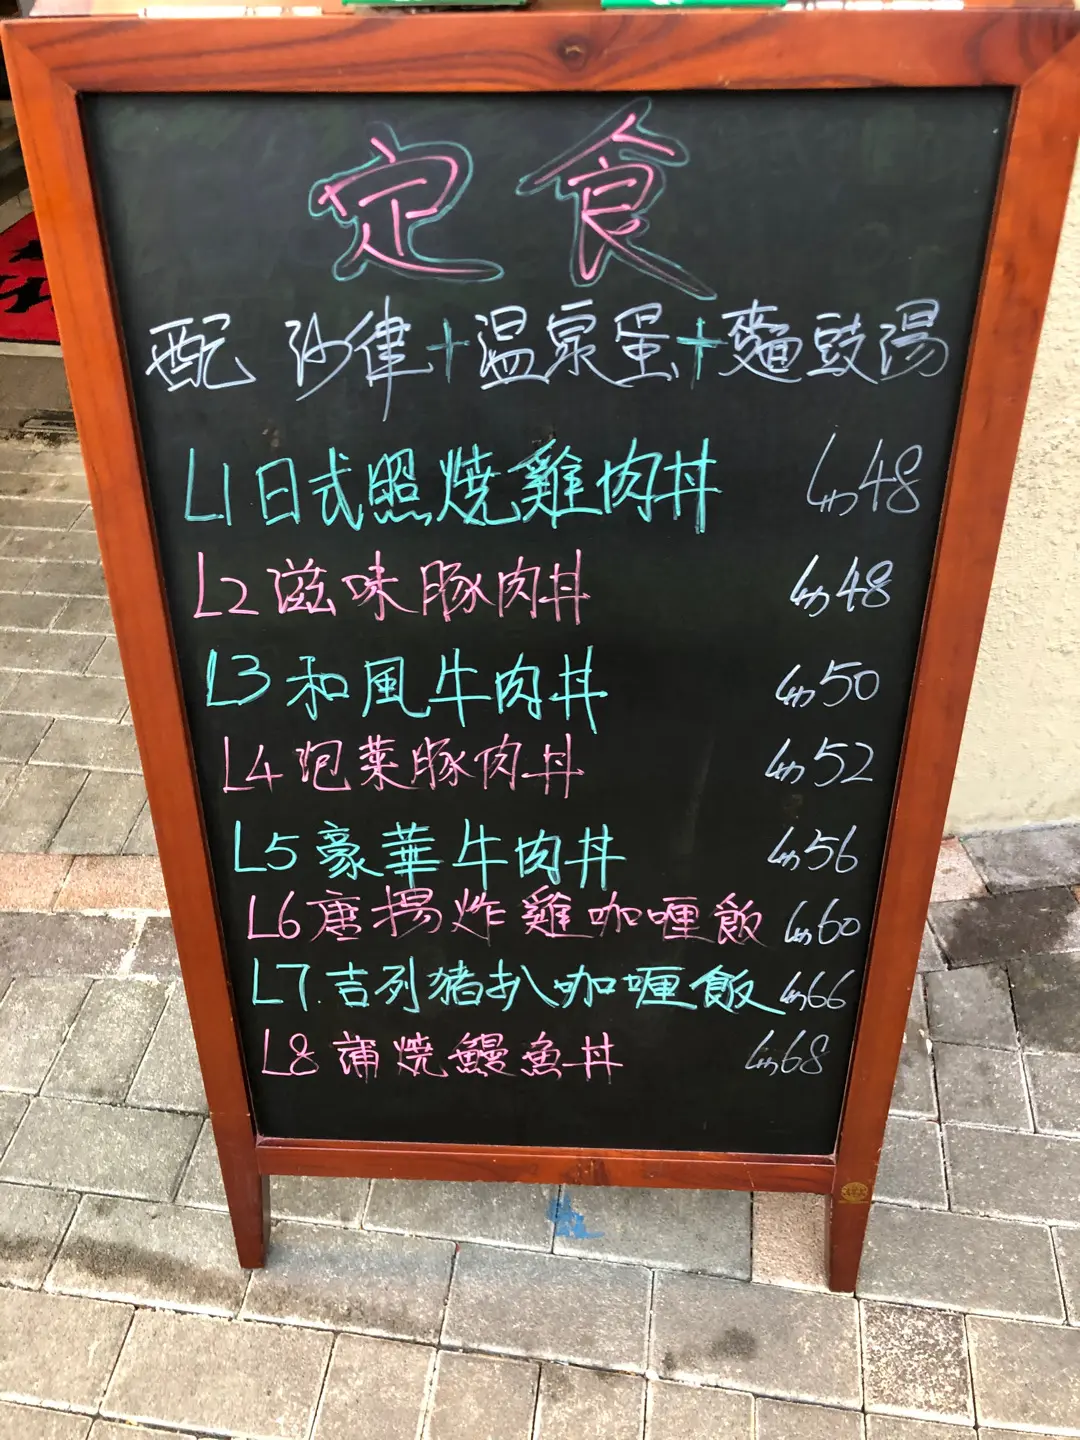 定食
配 沙律+温泉蛋+麵豉湯
L1日式照燒雞肉丼 48
L2滋味豚肉丼 48
L3和風牛肉丼 50
L4泡菜豚肉丼 52
L5豪華牛肉丼 56
L6唐揚炸雞咖喱飯 60
L7.吉列豬扒咖喱飯 66
L8蒲燒鰻魚丼 68